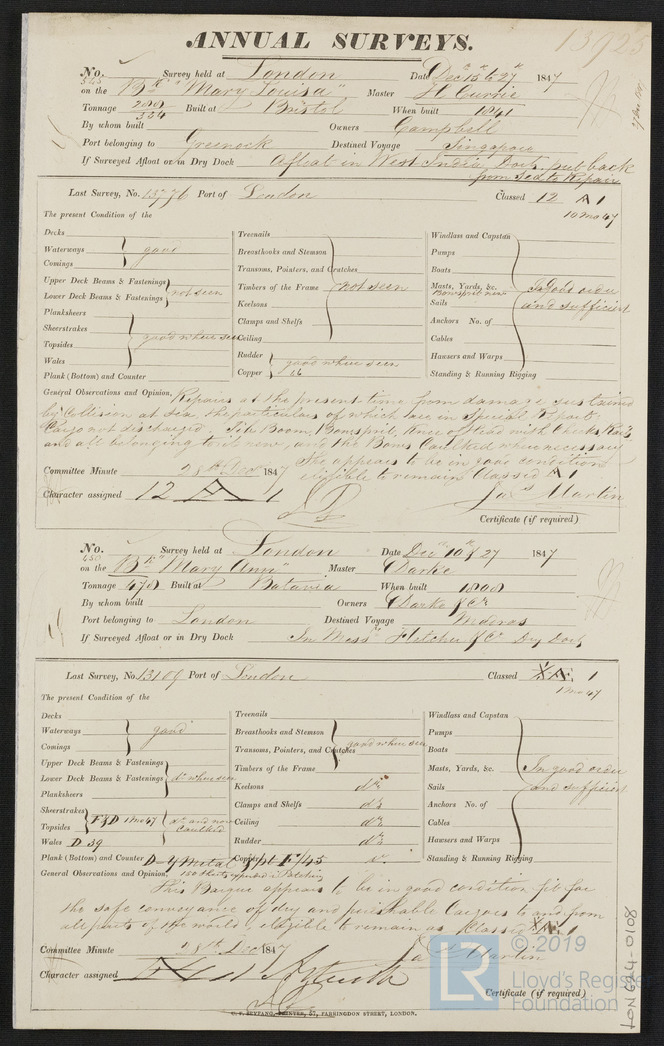 13925
ANNUAL SURVEYS.
No. 545 Survey held at London Date Decr 15th & 27th 1847
on the Bk "Mary Louisa" Master H Currie
Tonnage 288 / 334 Built at Bristol When built 1841
By whom built Owners Campbell
Port belonging to Greenock Destined Voyage Singapore
If Surveyed Afloat or in Dry Dock Afloat in West India Dock, put back
from Sea to Repair
Last Survey, No. 13776 Port of London Classed 12 A 1
10 mo 47
The present Condition of the
Decks
Waterways good
Comings
Upper Deck Beams & Fastenings
Lower Deck Beams & Fastenings not seen
Planksheers
Sheerstrakes
Topsides good where seen
Wales
Plank (Bottom) and Counter
Treenails
Breasthooks and Stemson
Transoms, Pointers, and Crutches
Timbers of the Frame not seen
Keelsons
Clamps and Shelfs
Ceiling
Rudder good where seen
Copper 46
Windlass and Capstan
Pumps
Boats
Masts, Yards, &c. In Good order
Bowsprit new
Sails and sufficient
Anchors No. of
Cables
Hawsers and Warps
Standing & Running Rigging
General Observations and Opinion, Repairs at the present time from damage sustained
by Collision at Sea, the particulars of which are in Special Report.
Cargo not discharged. Jib Boom, Bowsprit, Knee of Head with Cheeks, Rails
and all belonging to it new, and the Bows Caulked where necessary
She appears to be in good condition
eligible to remain Classed A 1
Committee Minute 28th Decr 1847
Character assigned 12 A 1
Jas Martin
Certificate (if required)
No. 450 Survey held at London Date Decr 10th & 27 1847
on the Bk "Mary Ann" Master Darke
Tonnage 478 Built at Batavia When built 1808
By whom built Owners Darke & Co
Port belonging to London Destined Voyage Madras
If Surveyed Afloat or in Dry Dock In Messrs Fletcher & Co Dry Dock
Last Survey, No. 13109 Port of London Classed Æ 1
1 mo 47
The present Condition of the
Decks
Waterways good
Comings
Upper Deck Beams & Fastenings
Lower Deck Beams & Fastenings do where seen
Planksheers
Sheerstrakes
Topsides F&D 1 mo 47 do and now caulked
Wales D 39
Plank (Bottom) and Counter D
Treenails
Breasthooks and Stemson good where seen
Transoms, Pointers, and Crutches
Timbers of the Frame
Keelsons do
Clamps and Shelfs do
Ceiling do
Rudder do
Copper Y Metal 45 do
Windlass and Capstan
Pumps
Boats
Masts, Yards, &c. In good order
Sails and sufficient
Anchors No. of
Cables
Hawsers and Warps
Standing & Running Rigging
General Observations and Opinion,
This Barque appears to be in good condition fit for
the safe conveyance of dry and perishable Cargoes to and from
all parts of the world, eligible to remain as Classed Æ 1
Committee Minute 28th Decr 1847
Character assigned
Jas Martin
Certificate (if required)
PRINTER, 57, FARRINGDON STREET, LONDON.
LON 664-0108
LR
© 2019
Lloyd's Register
Foundation